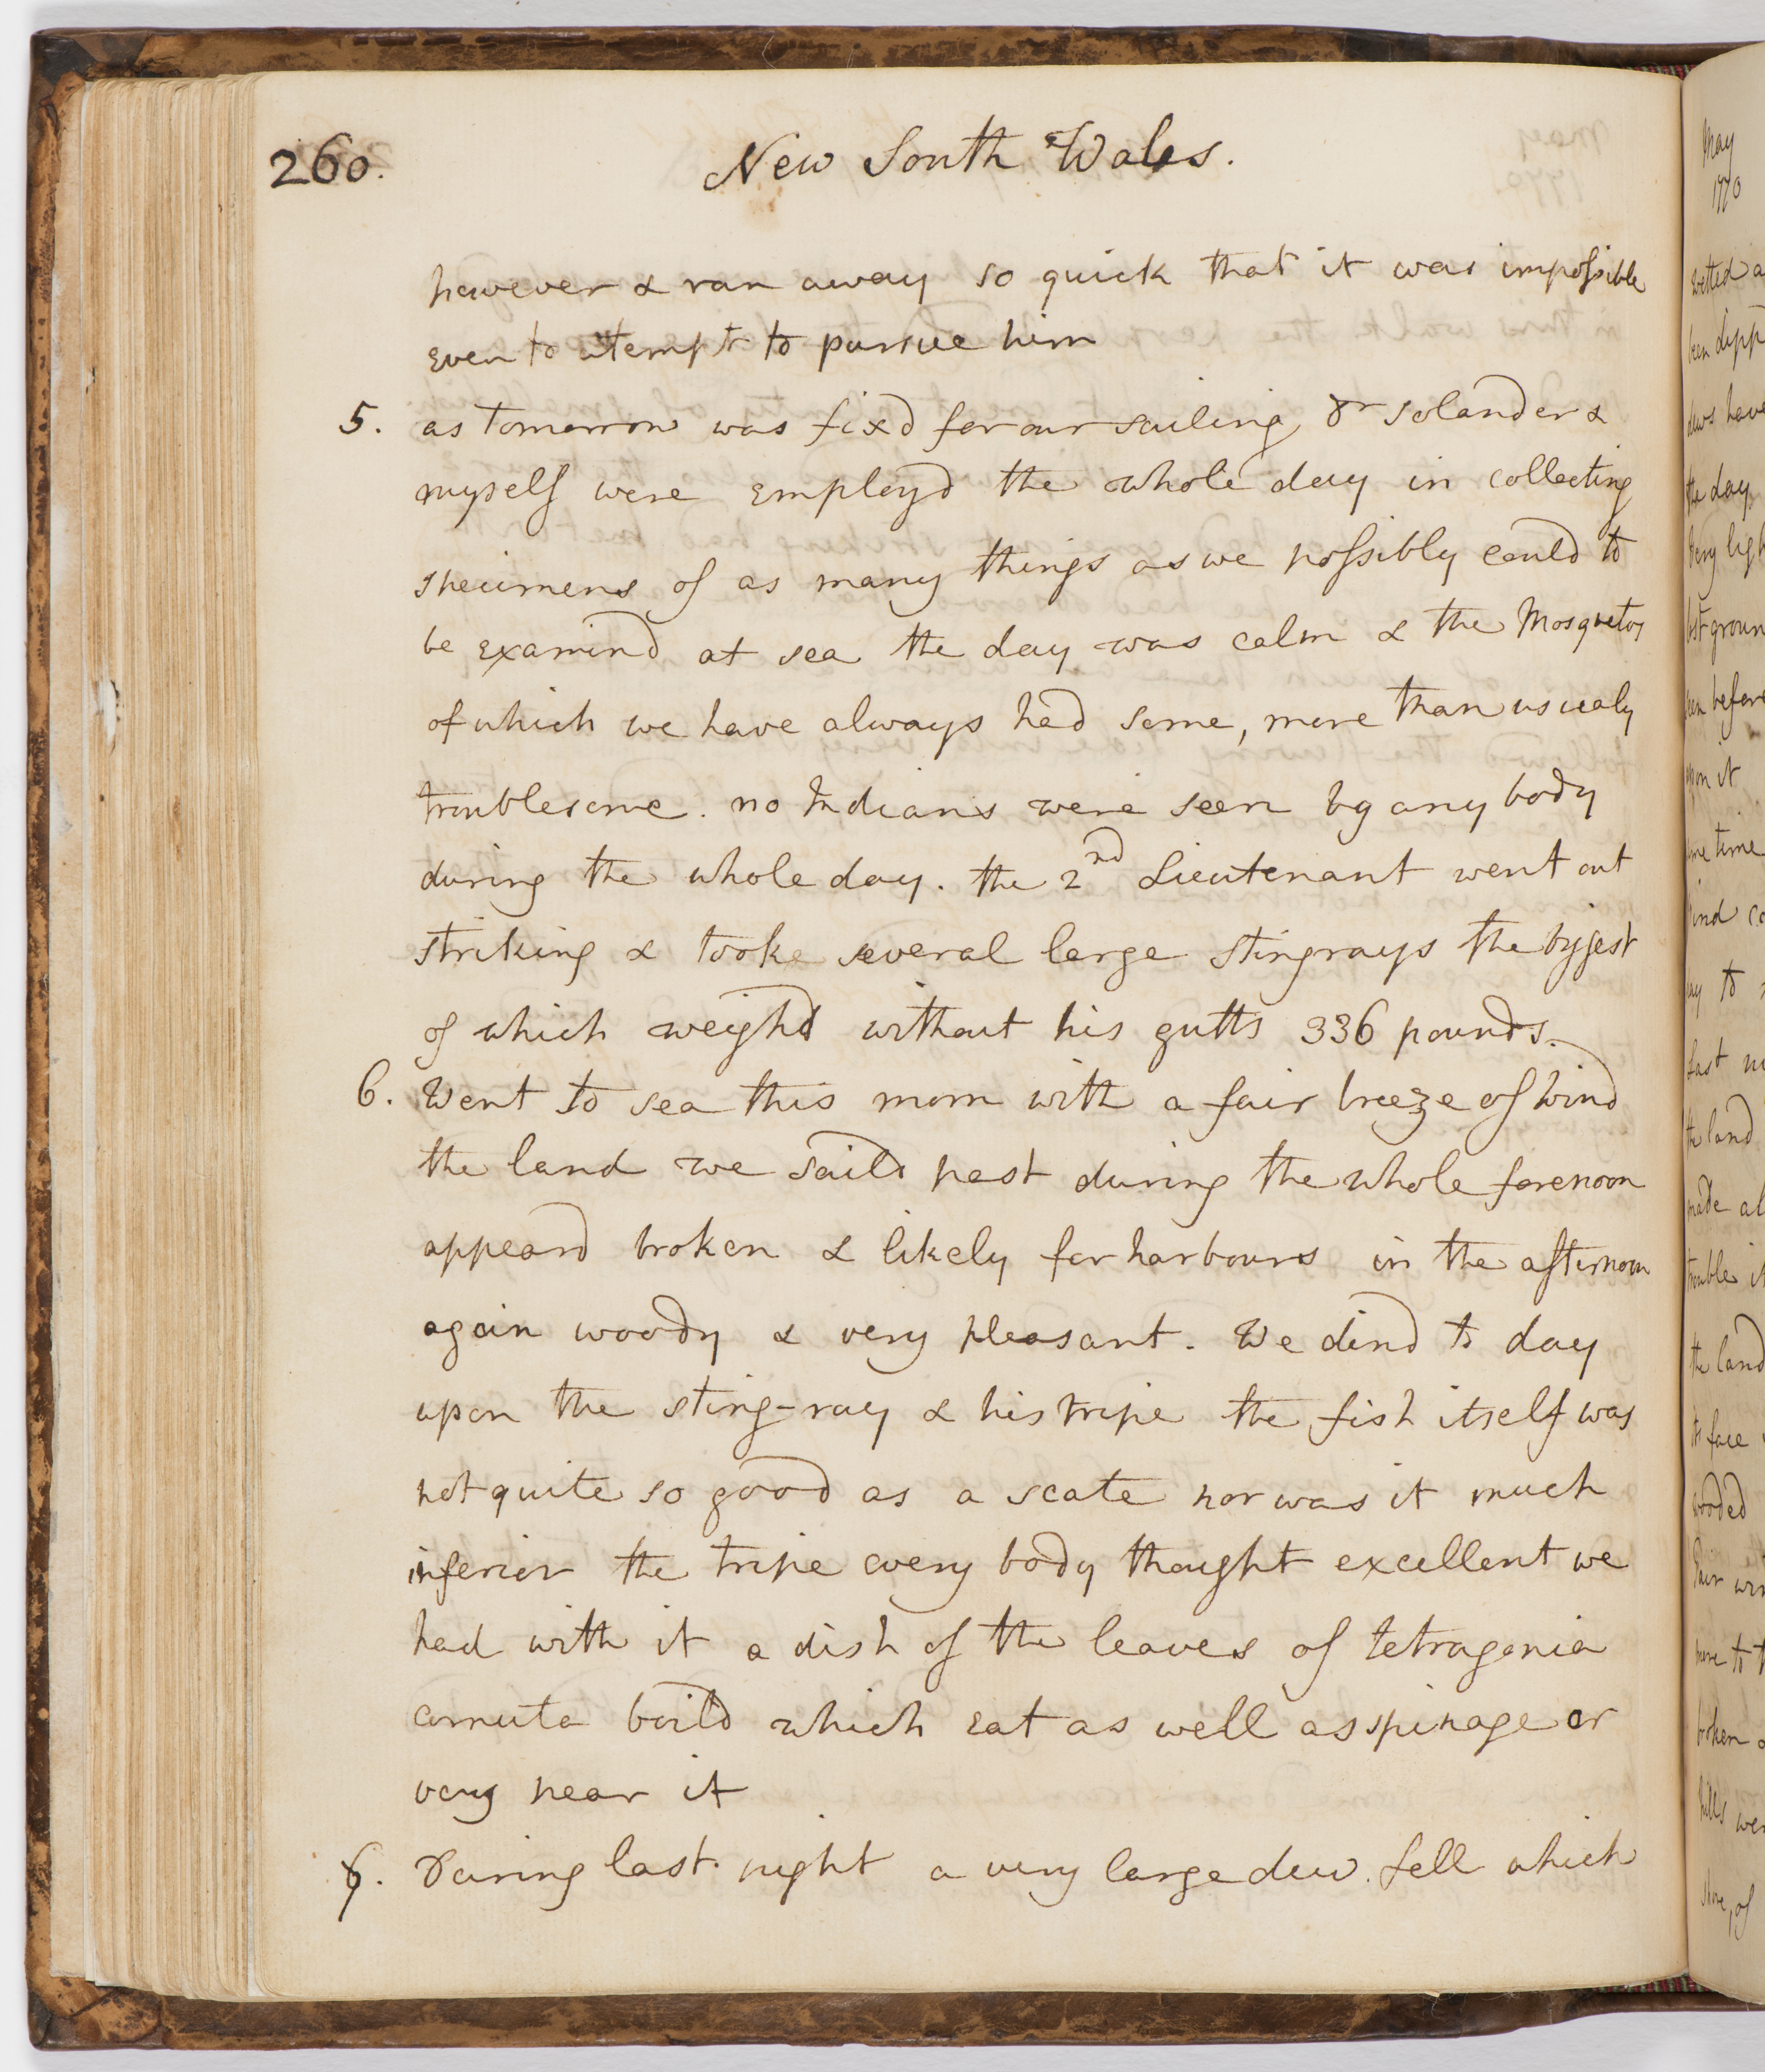 260.
New South Wales.
however & ran away so quick that it was impossible
even to atempt to pursue him
5. as tomorrow was fixd for our sailing Dr Solander &
myself were employd the whole day in collecting
specimens of as many things as we possibly could to
be examind at sea the day was calm & the Mosquetos
of which we have always had some, more than usualy
troublesome. no Indians were seen by any body
during the whole day. the 2nd Lieutenant went out
striking & tooke several large stingrays the biggest
of which weighd without his gutts 336 pounds.
6. Went to sea this morn with a fair breeze of wind
the land we saild past during the whole forenoon
appeard broken & likely for harbours in the afternoon
again woody & very pleasant. We dind to day
upon the sting-ray & his tripe the fish itself was
not quite so good as a scate nor was it much
inferior the tripe every body thought excellent we
had with it a dish of the leaves of tetragonia
cornuta boild which eat as well as spinage or
very near it
7. During last night a very large dew fell which
May
1770
wetted
been dipp
dews have
the day
very ligh
groun
before
upon it
time
to
last
the land
made al
trouble it
the land
its face
wooded
Fair win
more to t
broken
hills wer
shore, of